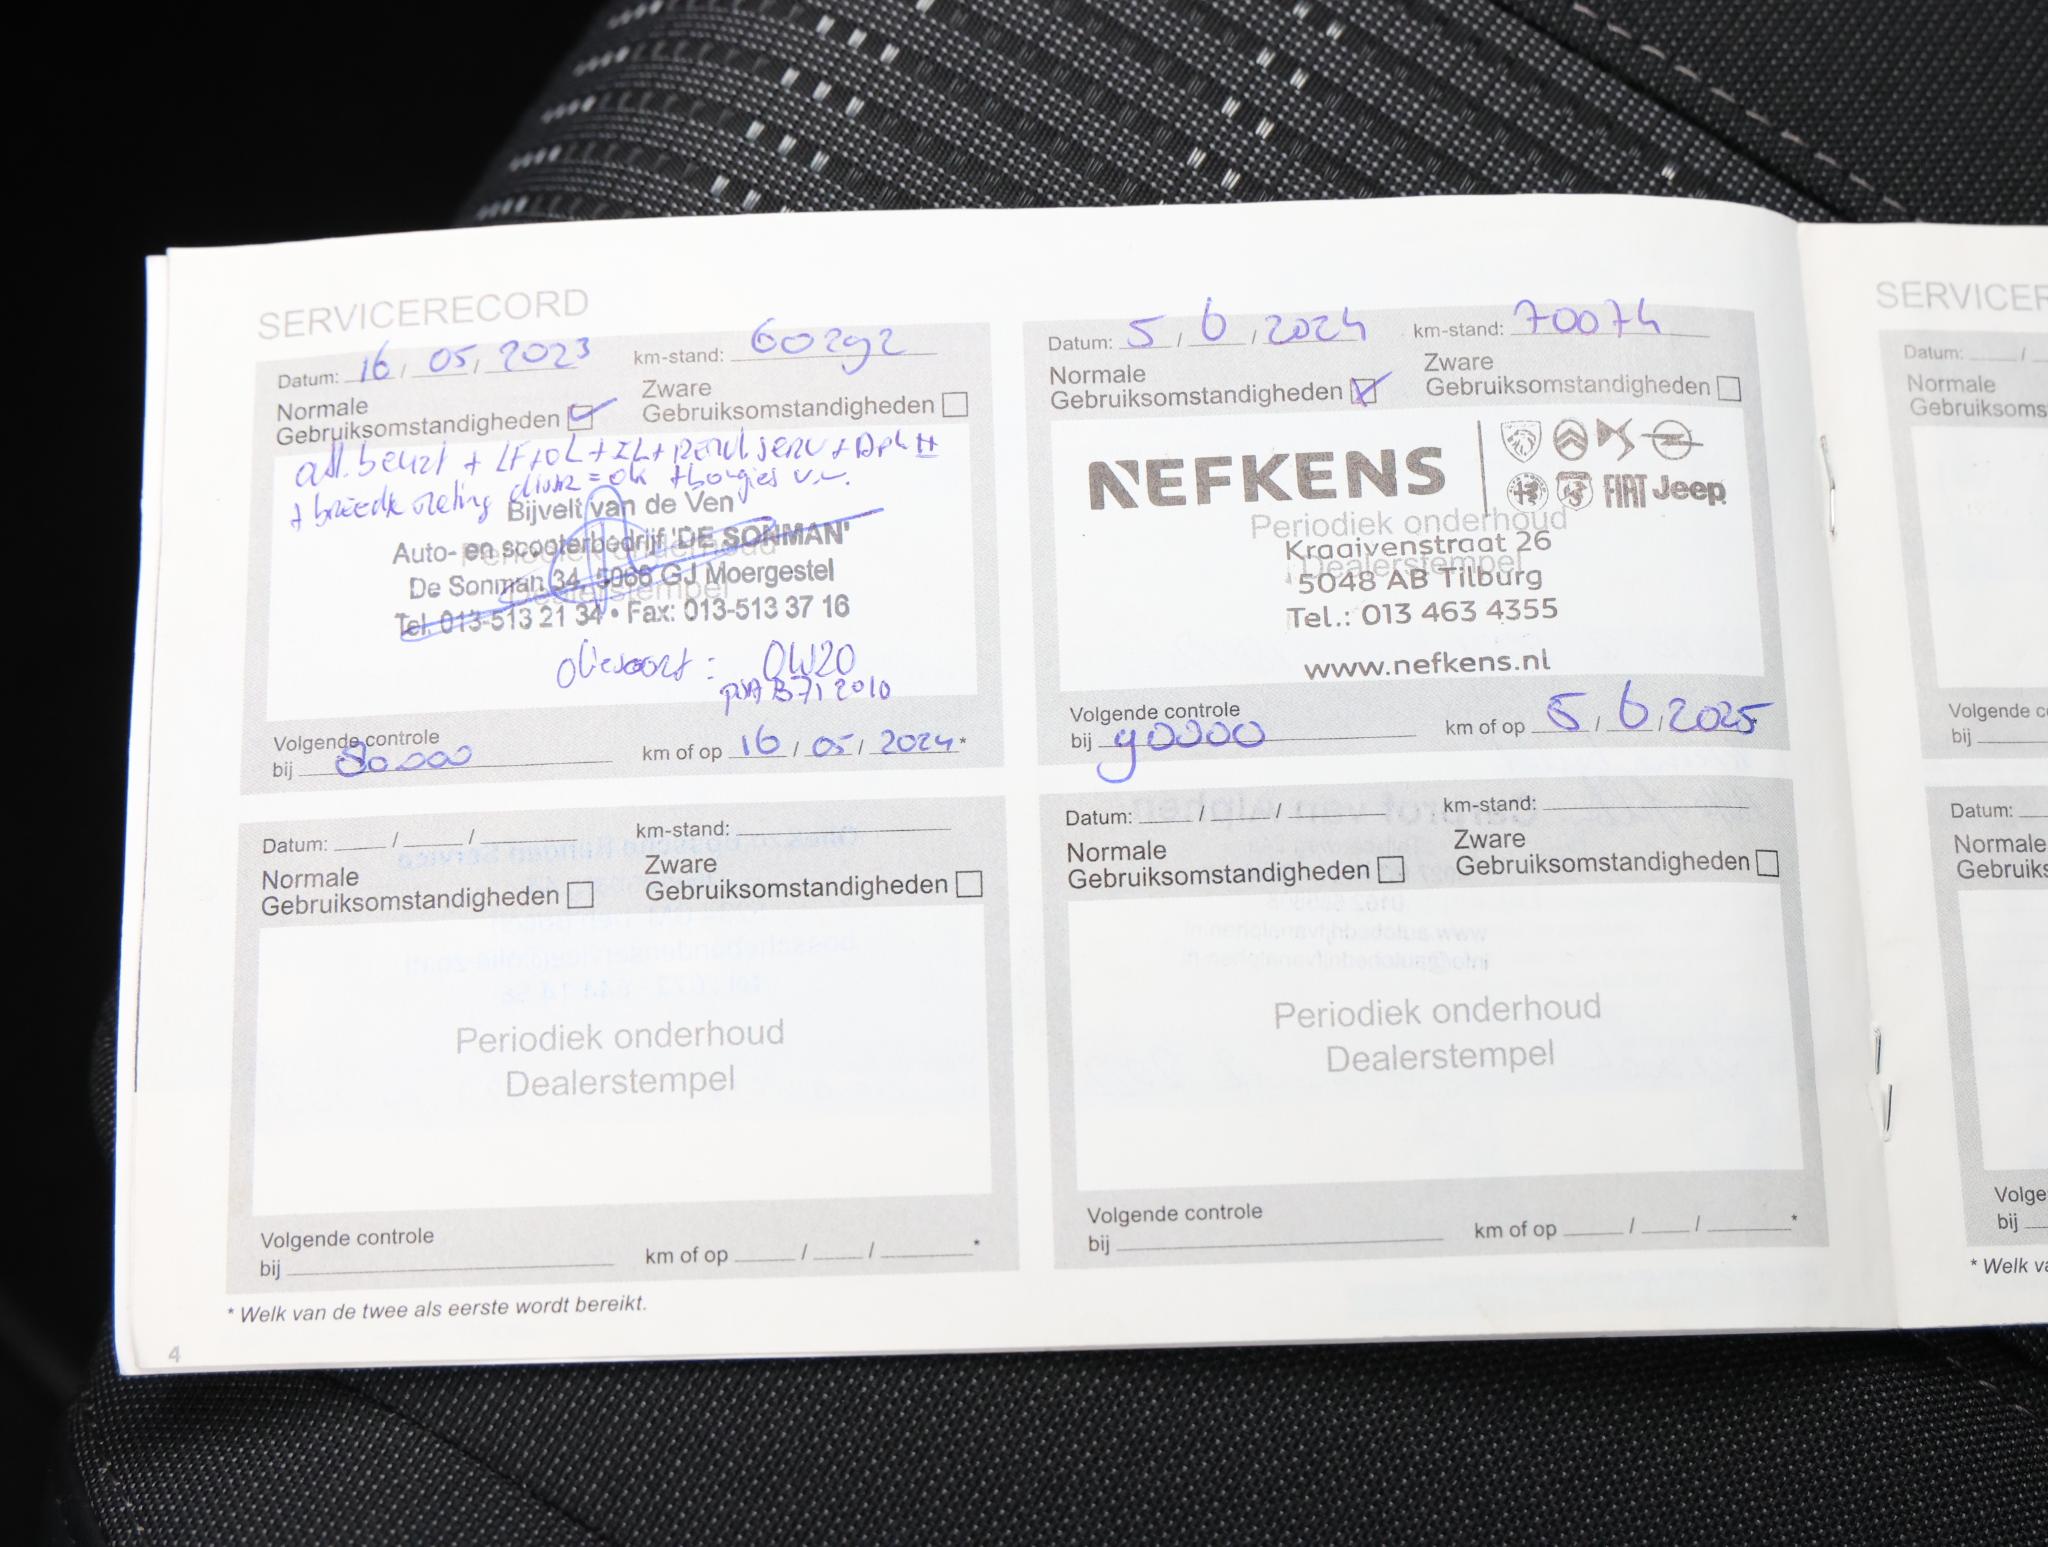 SERVICERECORD
Datum: 16 / 05 / 2023 km-stand: 60292
Normale
Gebruiksomstandigheden
Zware
Gebruiksomstandigheden
+ LF + OL + IL +
= ok
Bijvelt van de Ven
Auto- en scooterbedrijf 'DE SONMAN'
De Sonman 34, 5066 GJ Moergestel
Tel. 013-513 21 34 • Fax: 013-513 37 16
Periodiek onderhoud
Dealerstempel
oliesoort: 0W20
PSA B71 2010
Volgende controle
bij 80.000 km of op 16 / 05 / 2024*
Datum: 5 / 6 / 2024 km-stand: 70074
Normale
Gebruiksomstandigheden
Zware
Gebruiksomstandigheden
NEFKENS
FIAT Jeep
Periodiek onderhoud
Kraaivenstraat 26
Dealerstempel
5048 AB Tilburg
Tel.: 013 463 4355
www.nefkens.nl
Volgende controle
bij 90000 km of op 5 / 6 / 2025*
Datum: / / km-stand:
Normale
Gebruiksomstandigheden
Zware
Gebruiksomstandigheden
Periodiek onderhoud
Dealerstempel
Volgende controle
bij km of op / / *
Datum: / / km-stand:
Normale
Gebruiksomstandigheden
Zware
Gebruiksomstandigheden
Periodiek onderhoud
Dealerstempel
Volgende controle
bij km of op / / *
* Welk van de twee als eerste wordt bereikt.
4
SERVICER
Datum: /
Normale
Gebruiksoms
Volgende co
bij
Datum:
Normale
Gebruiks
Volge
bij
* Welk va